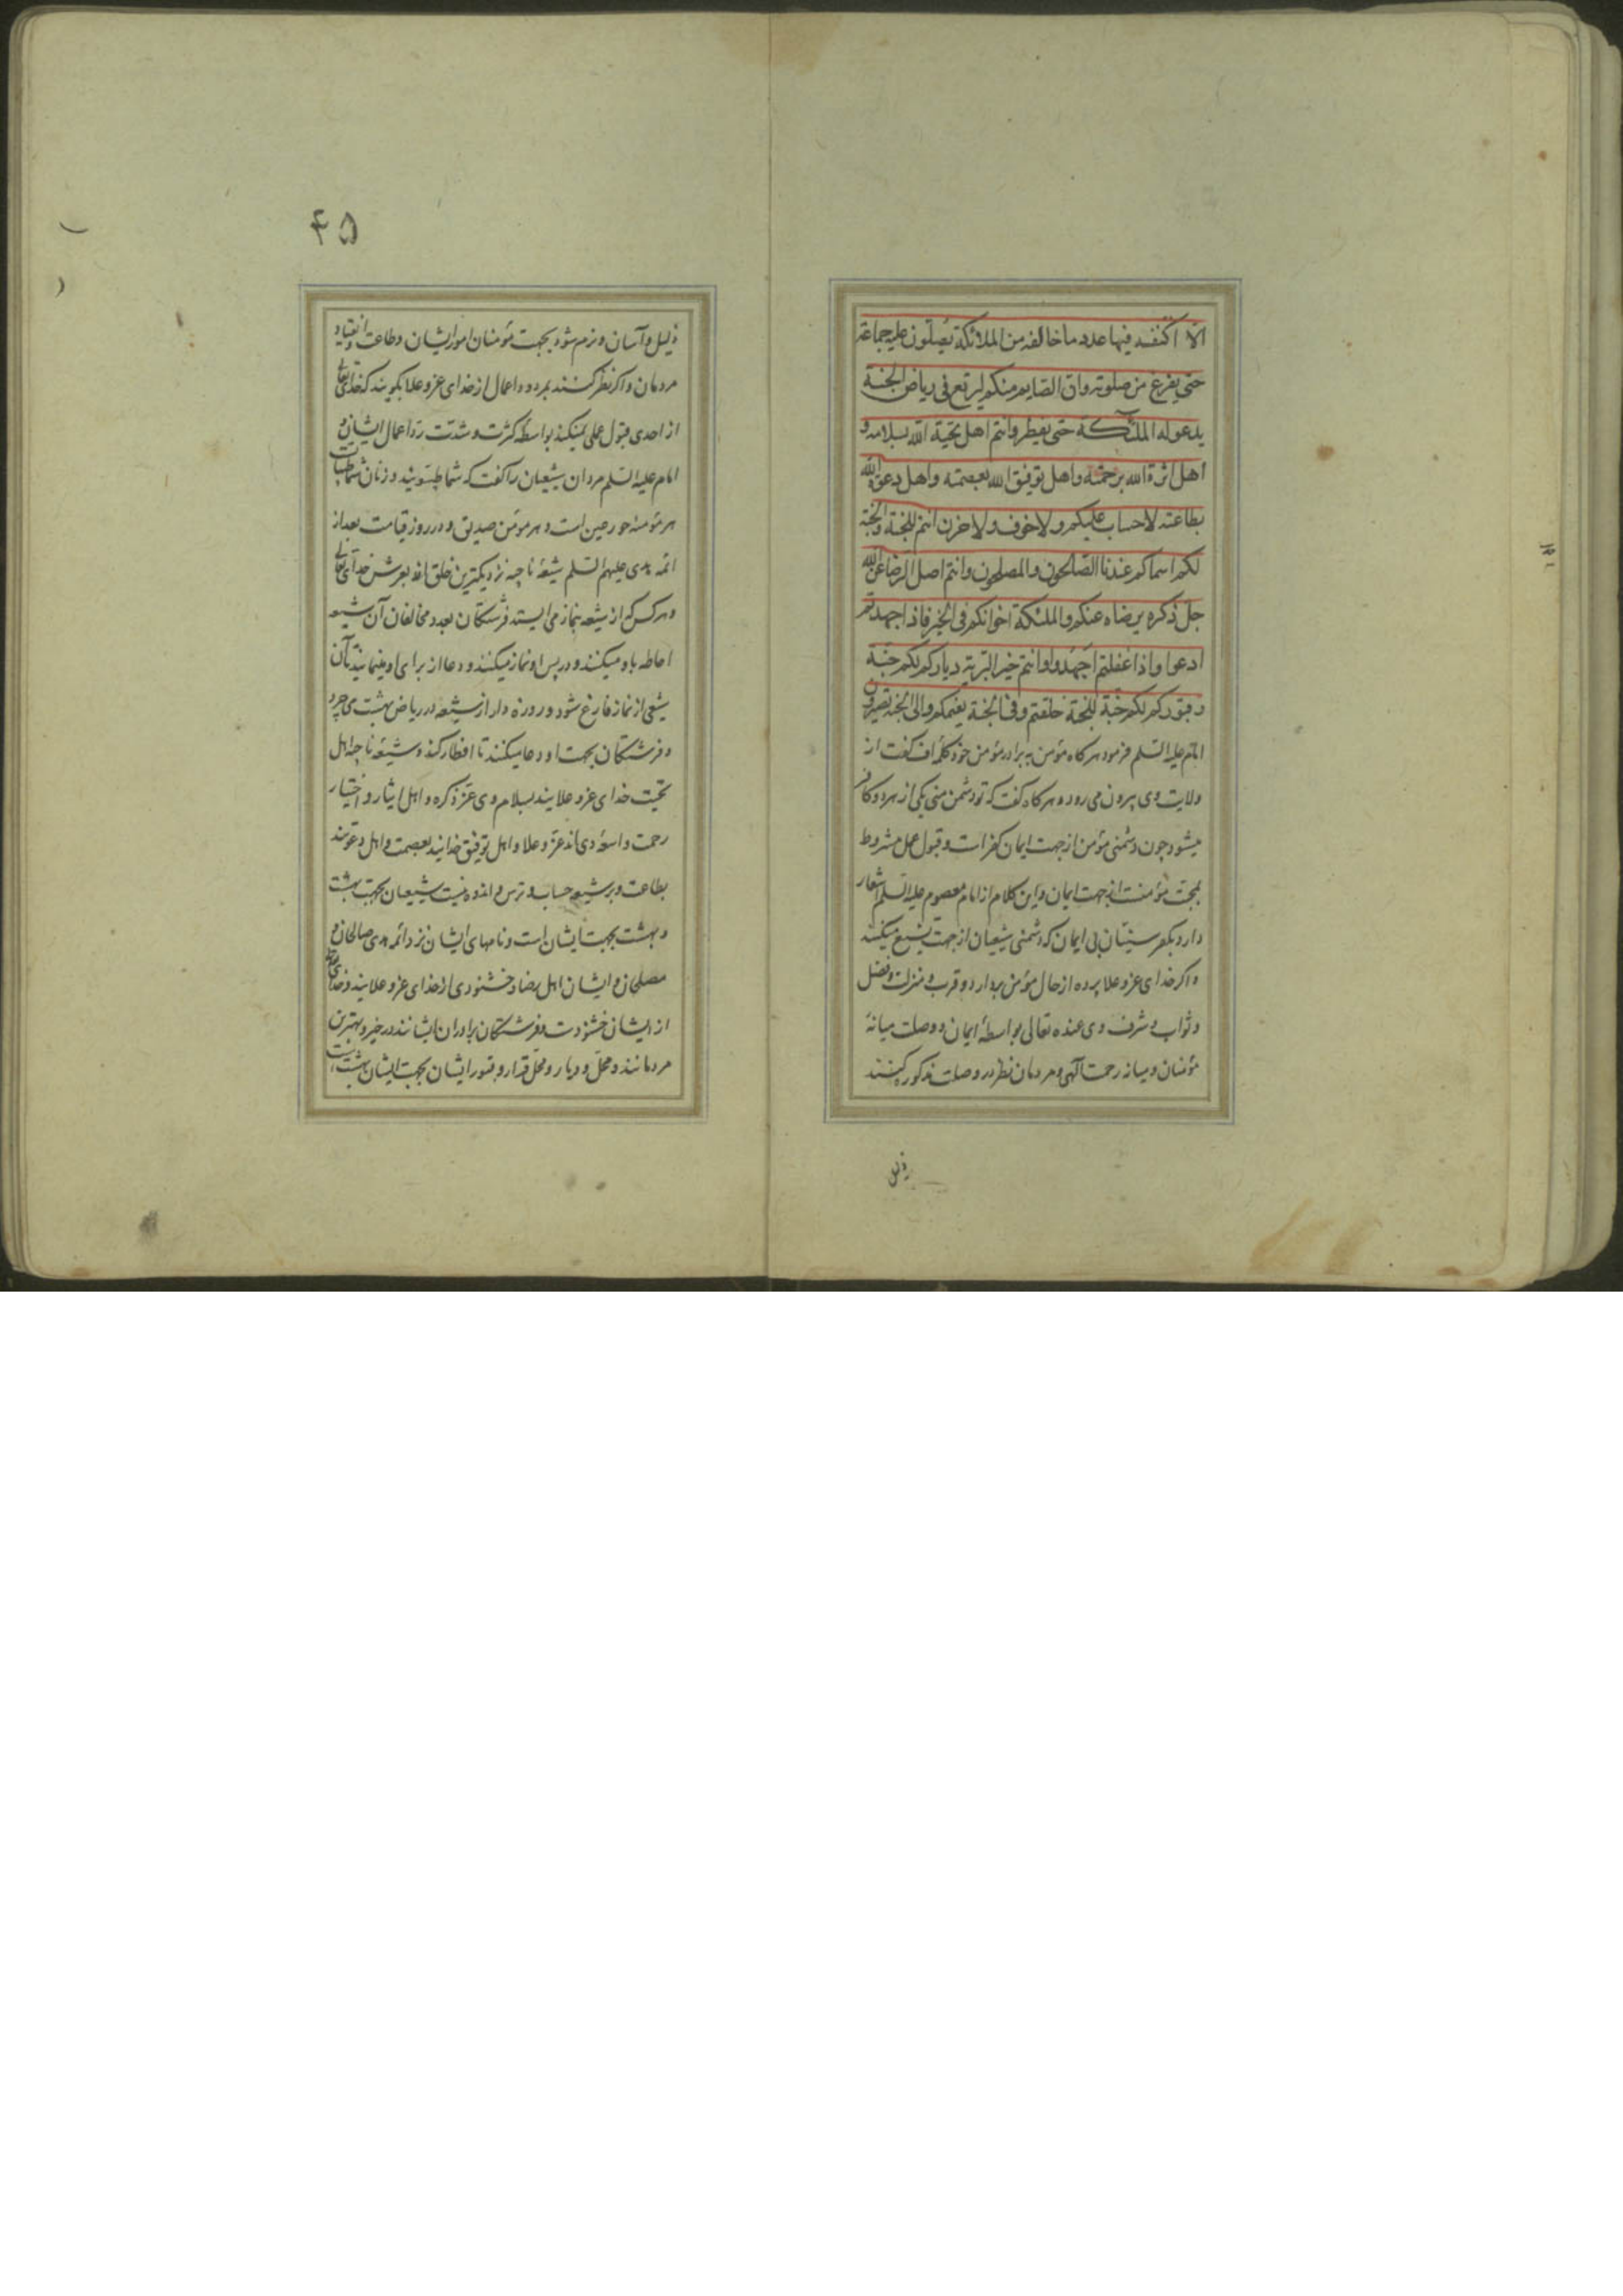 الا اكتنفه فيها عدد ما خالفه من الملائكة يصلون عليه جماعة
حتى يفرغ من صلوته وان الصايم منكم ليرتع فى رياض الجنة
يدعو له الملئكة حتى يفطر وانتم اهل تحية الله بسلامه و
اهل اثرة الله برحمته واهل توفيق الله بعصمته واهل دعوة الله
بطاعته لا حساب عليكم ولا خوف ولا حزن انتم للجنة والجنة
لكم اسماكم عندنا الصالحون والمصلحون وانتم اهل الرضا عن الله
جل ذكره برضاه عنكم والملئكة اخوانكم فى الخير فاذا اجهدتم
ادعوا واذا غفلتم اجهدوا وانتم خير البرية دياركم لكم جنة
وقبوركم لكم جنة للجنة خلقتم وفى الجنة نعيمكم والى الجنة تصيرون
امام عليه السلم فرمود هر كاه مؤمن به برادر مؤمن خود كلمه اف كفت از
ولايت وى بيرون مى رود و هر كاه كفت كه تو دشمن منى يكى از هر دو كافر
ميشود چون دشمنى مؤمن از جهت ايمان كفر است و قبول عمل مشروط
بمحبت مؤمنست از جهت ايمان و اين كلام از امام معصوم عليه السلم اشعار
دارد بكفر سنيان بى ايمان كه دشمنى شيعيان از جهت تشيع ميكنند
و اكر خداى عز و علا پرده از حال مؤمن بردارد و قرب و منزلت و فضل
و ثواب و شرف وى عنده تعالى بواسطهٔ ايمان و وصلت ميانهٔ
مؤمنان و ميانه رحمت آلهى و مردمان نظر در وصلت مذكور كنند
ذليل
۴۵
ذليل و آسان و نرم شود بجهت مؤمنان امور ايشان و طاعت و انقياد
مردمان و اكر نظر كنند بمردود اعمال از خداى عز و علا بكويند كه خداى تعالى
از احدى قبول عملى نميكند بواسطه كثرت و شدت رد اعمال ايشان و
امام عليه السلم مردان شيعيان را كفت كه شما طيبونيد و زنان شما طيبات
هر مؤمنه حور عين است و هر مؤمن صديق و در روز قيامت بعد از
ائمه هدى عليهم السلم شيعهٔ ناجيه نزديكترين خلق اند بعرش خداى تعالى
و هر كس كه از شيعه بنماز مى ايستد فرشتكان بعدد مخالفان آن شيعه
احاطه باو ميكنند و در پس او نماز ميكنند و دعا از براى او مينمايند تا آن
شيعى از نماز فارغ شود و روزه دار از شيعه در رياض بهشت مى چرد
و فرشتكان بجهت او دعا ميكنند تا افطار كند و شيعهٔ ناجيه اهل
تحيت خداى عز و علايند بسلام وى عز ذكره و اهل ايثار و اختيار
رحمت واسعهٔ وى اند عز و علا و اهل توفيق خدايند بعصمت و اهل دعوتند
بطاعت و بر شيعه حساب و ترس و اندوه نيست شيعيان بجهت بهشت
و بهشت بجهت ايشان است و نامهاى ايشان نزد ائمه هدى صالحان و
مصلحان و ايشان اهل رضا و خشنودى از خداى عز و علايند و خداى
از ايشان خشنودست و فرشتكان برادران ايشانند در خير و بهترين
مردمانند و محل و ديار و محل قرار و قبور ايشان بجهت ايشان بهشت است